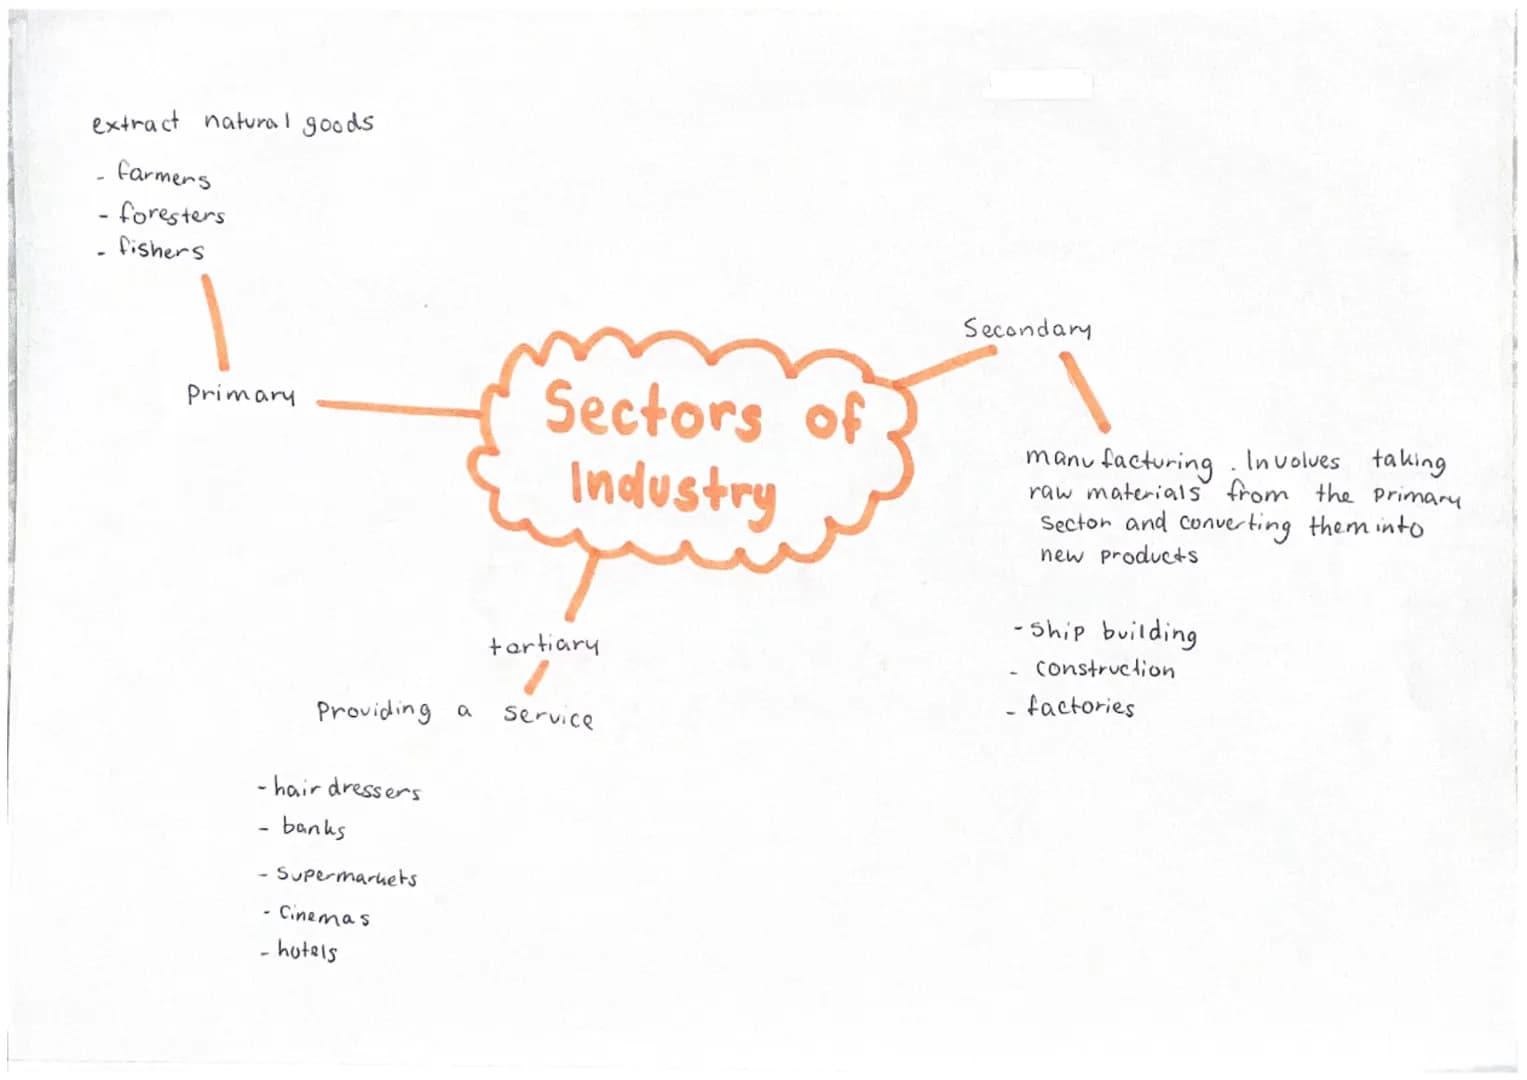 extract natural goods
- farmers
- foresters
- fishers
Primary
Sectors of
Industry
Secondary
manufacturing. Involves taking
raw materials from the primary
sector and converting them into
new products
- Ship building
- construction
- factories
tertiary
Providing a service
- hairdressers
- banks
- Supermarkets
- Cinemas
- hotels